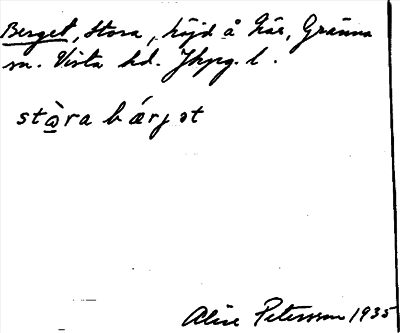 Berget, Stora, höjd å här, Gränna
sn. Vista hd. Jkpg. l.
stɷ̀ra bárjət
Alice Petersson 1935